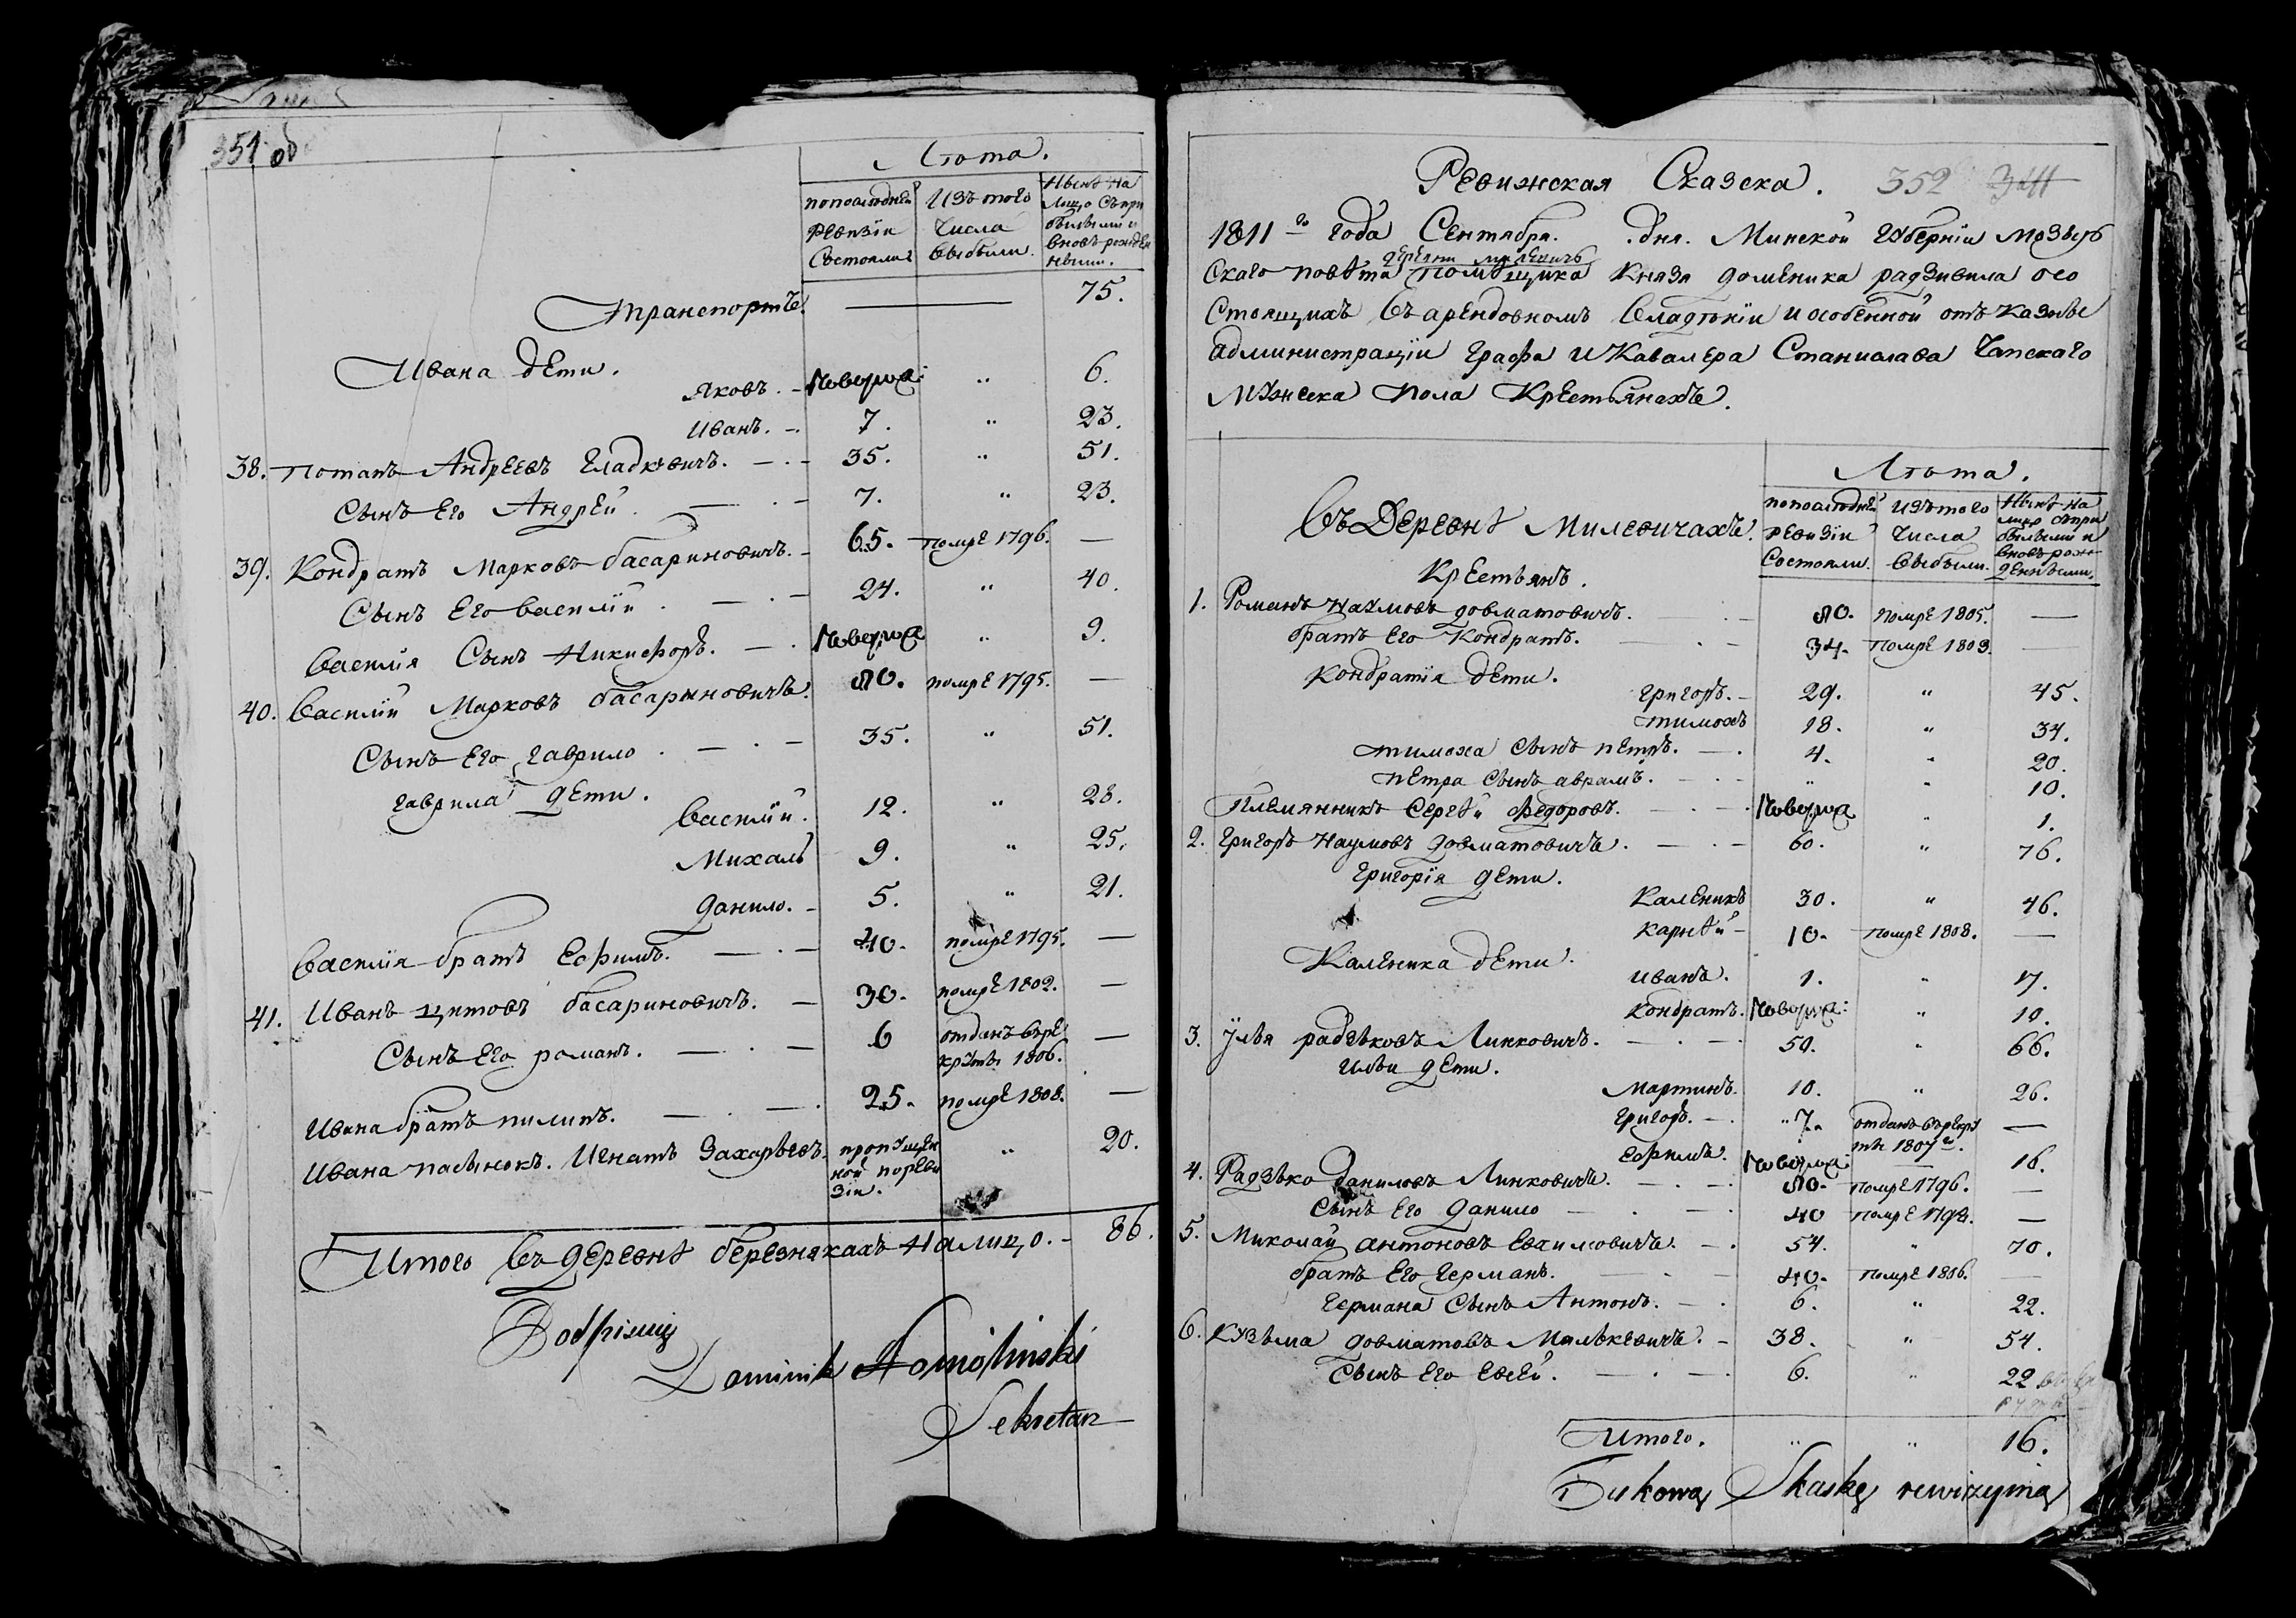 351 об
Лѣта.
попоследней ревизіи состояли
Изъ того числа выбыли.
Нынѣ на лицо съ прибылыми и вновь рожденными.
Транспортъ. 75.
Ивана дѣти.
Яковъ. новорож: „ 6.
Иванъ. 7. „ 23.
38. Потапъ Андреевъ Гладкевичъ. 35. „ 51.
Сынъ Его Андрей. 7. „ 23.
39. Кондратъ Марковъ басариновичъ. 65. помре 1796. —
Сынъ Его Василій. 24. „ 40.
Василія Сынъ Никифоръ. новорож „ 9.
40. Василій Марковъ басариновичъ. 80. помре 1795. —
Сынъ Его Гаврило. 35. „ 51.
Гаврила дѣти.
Василій. 12. „ 28.
Михалъ 9. „ 25.
Данило. 5. „ 21.
Василія братъ Ефимъ. 40. помре 1795. —
41. Иванъ титовъ басариновичъ. 30. помре 1802. —
Сынъ Его романъ. 6 отданъ въ рекруты 1806. —
Ивана братъ пилипъ. 25. помре 1808. —
Ивана пасынокъ. Игнатъ Захарьевъ. пропущенной поревизіи. „ 20.
Итого въ деревнѣ березнякахъ На лицо. 86.
Dominik
Sekretarz
Ревижская Сказска. 352
1811го года Сентября. дня. Минской Губерніи Мозыр
деревни милевичъ
Скаго повѣта помѣщика Князя доменика радзивила о со
Стоящихъ въ арендовномъ владѣніи и особенной отъ казны
Администраціи Графа и Кавалера Станислава Чапскаго
Мужеска пола Крестьянахъ.
Лѣта.
Въ Деревнѣ Милевичахъ.
попоследней ревизіи Состояли.
изъ того числа выбыли.
Нынѣ на лицо съ прибылыми и вновь рожденными.
Крестьянъ.
1. Романъ Наумовъ довматовичъ. 80. помре 1805. —
братъ Его Кондратъ. 34. помре 1809. —
Кондратія дѣти.
Григоръ. 29. „ 45.
тимохъ 18. „ 34.
тимоха Сынъ петръ. 4. „ 20.
петра Сынъ аврамъ. „ „ 10.
Племянникъ Сергѣй федоровъ. новорож „ 1.
2. Григоръ Наумовъ довматовичъ. 60. „ 76.
Григорія дѣти.
Каленикъ 30. „ 46.
Карнѣй 10. помре 1808. —
Каленика дѣти.
Иванъ. 1. „ 17.
Кондратъ. новорож: „ 10.
3. Улья радьковъ Линковичъ. 50. „ 66.
Ильи дѣти.
Мартинъ. 10. „ 26.
Григоръ. 7. отданъ въ рекруты 1807го. —
Ефимъ. новорож: — 16.
4. Радзько Даниловъ Линковичъ. 80. помре 1796. —
Сынъ Его Данило 40 помре 1798. —
5. Миколай антоновъ Евхимовичъ. 54. „ 70.
братъ Его Германъ. 40. помре 1806. —
Германа Сынъ Антонъ. 6. „ 22.
6. Кузьма довматовъ Малькевичъ. 38. „ 54.
Сынъ Его Евсей. 6. „ 22
Итого. „ „ 16.
Skaskę rewizyiną